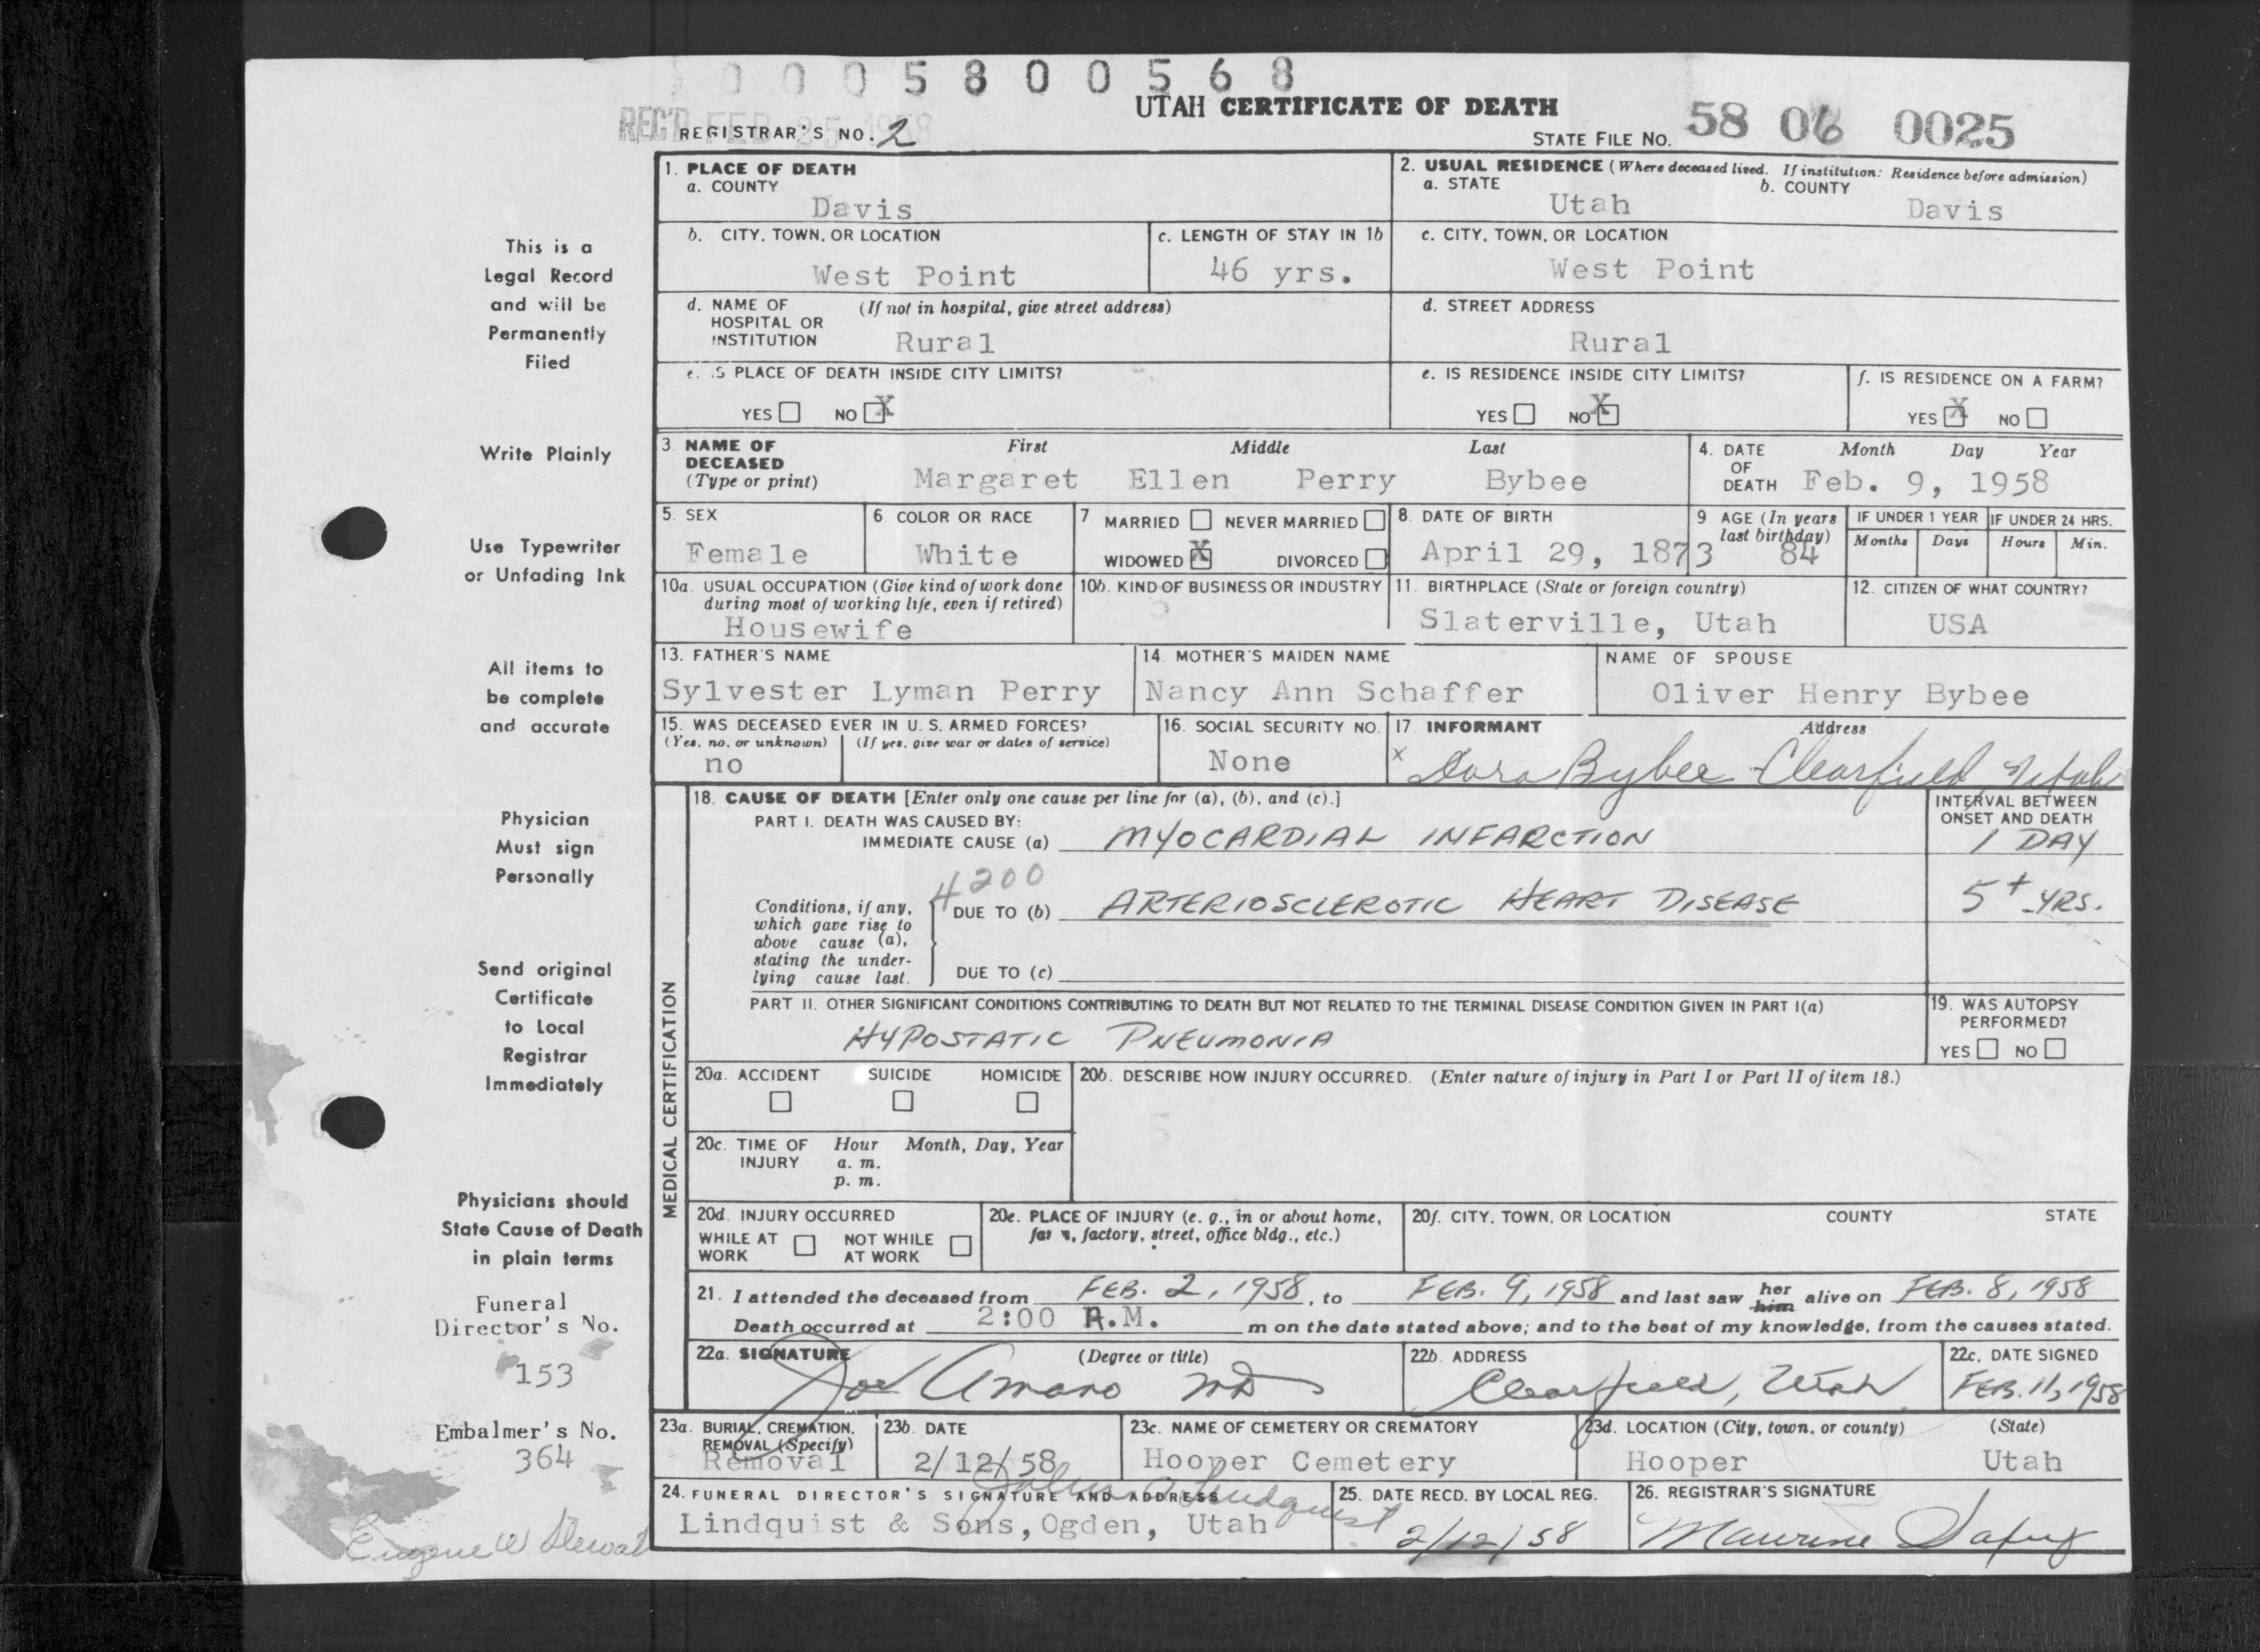 0 0 0 5 8 0 0 5 6 8
UTAH CERTIFICATE OF DEATH
REC'D FEB 25 1958
REGISTRAR'S NO. 2
STATE FILE NO. 58 06 0025
1. PLACE OF DEATH
a. COUNTY
Davis
2. USUAL RESIDENCE (Where deceased lived. If institution: Residence before admission)
a. STATE
b. COUNTY
Utah Davis
b. CITY, TOWN, OR LOCATION
West Point
c. LENGTH OF STAY IN 1b
46 yrs.
c. CITY, TOWN, OR LOCATION
West Point
d. NAME OF (If not in hospital, give street address)
HOSPITAL OR
INSTITUTION Rural
d. STREET ADDRESS
Rural
e. IS PLACE OF DEATH INSIDE CITY LIMITS?
YES NO X
e. IS RESIDENCE INSIDE CITY LIMITS?
YES NO X
f. IS RESIDENCE ON A FARM?
YES X NO
3. NAME OF First Middle Last
DECEASED
(Type or print) Margaret Ellen Perry Bybee
4. DATE Month Day Year
OF
DEATH Feb. 9, 1958
5. SEX
Female
6 COLOR OR RACE
White
7 MARRIED NEVER MARRIED
WIDOWED X DIVORCED
8. DATE OF BIRTH
April 29, 1873
9 AGE (In years
last birthday)
84
IF UNDER 1 YEAR
Months Days
IF UNDER 24 HRS.
Hours Min.
10a. USUAL OCCUPATION (Give kind of work done
during most of working life, even if retired)
Housewife
10b. KIND OF BUSINESS OR INDUSTRY
11. BIRTHPLACE (State or foreign country)
Slaterville, Utah
12. CITIZEN OF WHAT COUNTRY?
USA
13. FATHER'S NAME
Sylvester Lyman Perry
14. MOTHER'S MAIDEN NAME
Nancy Ann Schaffer
NAME OF SPOUSE
Oliver Henry Bybee
15. WAS DECEASED EVER IN U. S. ARMED FORCES?
(Yes, no, or unknown) (If yes, give war or dates of service)
no
16. SOCIAL SECURITY NO.
None
17. INFORMANT Address
x Dora Bybee - Clearfield, Utah
MEDICAL CERTIFICATION
18. CAUSE OF DEATH [Enter only one cause per line for (a), (b), and (c).]
PART I. DEATH WAS CAUSED BY:
IMMEDIATE CAUSE (a) MYOCARDIAL INFARCTION
INTERVAL BETWEEN
ONSET AND DEATH
1 DAY
4200
Conditions, if any,
which gave rise to
above cause (a),
stating the under-
lying cause last.
DUE TO (b) ARTERIOSCLEROTIC HEART DISEASE
5+ YRS.
DUE TO (c)
PART II. OTHER SIGNIFICANT CONDITIONS CONTRIBUTING TO DEATH BUT NOT RELATED TO THE TERMINAL DISEASE CONDITION GIVEN IN PART I(a)
HYPOSTATIC PNEUMONIA
19. WAS AUTOPSY
PERFORMED?
YES NO
20a. ACCIDENT SUICIDE HOMICIDE
20b. DESCRIBE HOW INJURY OCCURRED. (Enter nature of injury in Part I or Part II of item 18.)
20c. TIME OF Hour Month, Day, Year
INJURY a. m.
p. m.
20d. INJURY OCCURRED
WHILE AT NOT WHILE
WORK AT WORK
20e. PLACE OF INJURY (e. g., in or about home,
farm, factory, street, office bldg., etc.)
20f. CITY, TOWN, OR LOCATION COUNTY STATE
21. I attended the deceased from FEB. 2, 1958, to FEB. 9, 1958 and last saw her him alive on FEB. 8, 1958
Death occurred at 2:00 A.M. m on the date stated above; and to the best of my knowledge, from the causes stated.
22a. SIGNATURE (Degree or title)
Joe Amano MD
22b. ADDRESS
Clearfield, Utah
22c. DATE SIGNED
FEB. 11, 1958
23a. BURIAL, CREMATION,
REMOVAL (Specify)
Removal
23b. DATE
2/12/58
23c. NAME OF CEMETERY OR CREMATORY
Hooper Cemetery
23d. LOCATION (City, town, or county) (State)
Hooper Utah
24. FUNERAL DIRECTOR'S SIGNATURE AND ADDRESS
Lindquist
Lindquist & Sons, Ogden, Utah
25. DATE RECD. BY LOCAL REG.
2/12/58
26. REGISTRAR'S SIGNATURE
Maurine
This is a
Legal Record
and will be
Permanently
Filed
Write Plainly
Use Typewriter
or Unfading Ink
All items to
be complete
and accurate
Physician
Must sign
Personally
Send original
Certificate
to Local
Registrar
Immediately
Physicians should
State Cause of Death
in plain terms
Funeral
Director's No.
153
Embalmer's No.
364
Eugene W